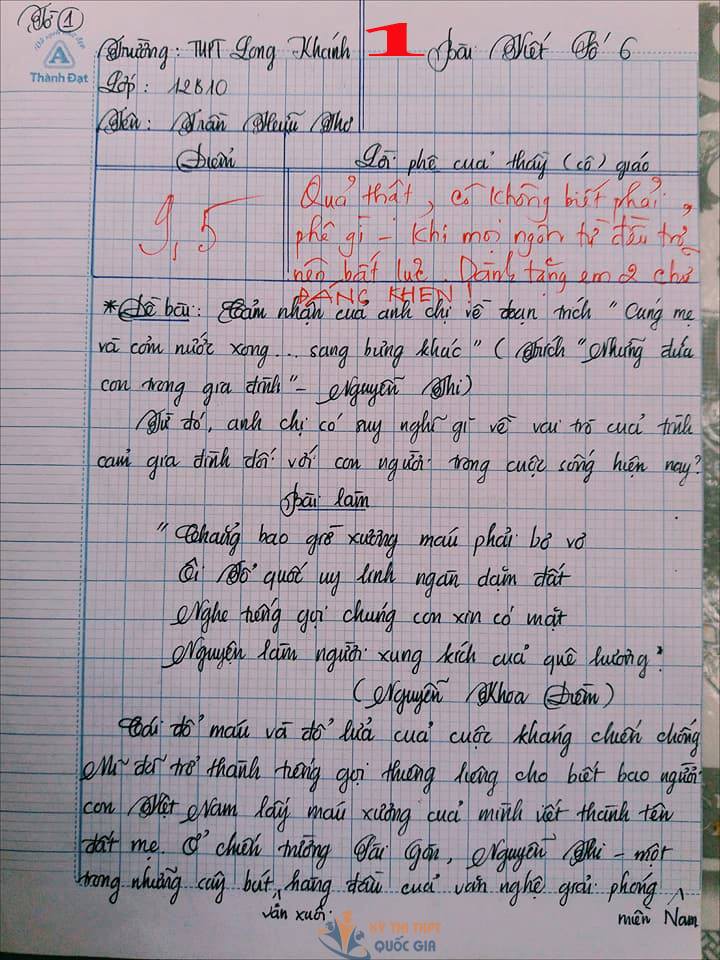 Tờ 1
Thành Đạt
1
Trường: THPT Long Khánh
Bài Viết Số 6
Lớp: 12B10
Tên: Trần Hữu Thơ
Điểm
Lời phê của thầy (cô) giáo
9,5
Quả thật, cô không biết phải
phê gì - khi mọi ngôn từ đều trở
nên bất lực. Dành tặng em 2 chữ
ĐÁNG KHEN!
*Đề bài: Cảm nhận của anh chị về đoạn trích "Cúng mẹ
và cơm nước xong... sang bưng khác" (Trích "Những đứa
con trong gia đình" - Nguyễn Thi)
Từ đó, anh chị có suy nghĩ gì về vai trò của tình
cảm gia đình đối với con người trong cuộc sống hiện nay?
Bài làm
"Chẳng bao giờ xương máu phải bơ vơ
Ôi Tổ quốc uy linh ngàn dặm đất
Nghe tiếng gọi chúng con xin có mặt
Nguyện làm người xung kích của quê hương"
(Nguyễn Khoa Điềm)
Cái đổ máu và đổ lửa của cuộc kháng chiến chống
Mĩ đã trở thành tiếng gọi thiêng liêng cho biết bao người
con Việt Nam lấy máu xương của mình viết thành tên
đất mẹ. Ở chiến trường Sài Gòn, Nguyễn Thi - một
trong những cây bút hàng đầu của văn nghệ giải phóng
văn xuôi
miền Nam
KỲ THI THPT
QUỐC GIA